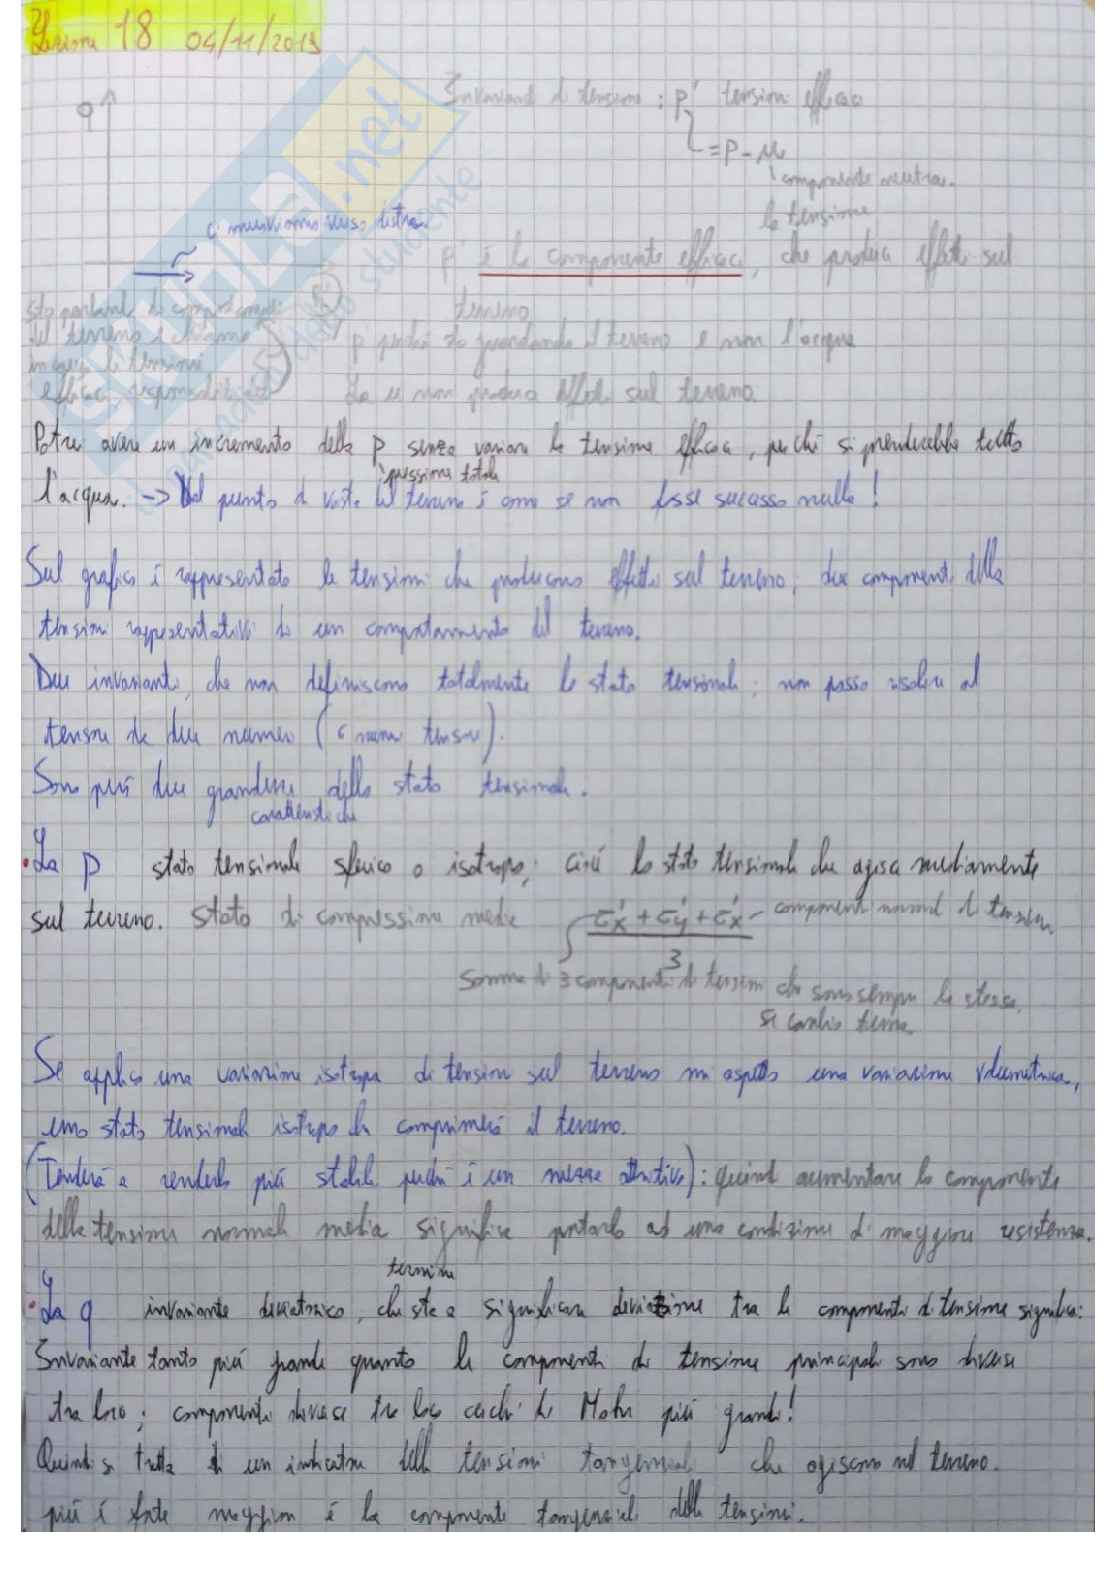 Lezione 18 04/11/2013
q
Invarianti di tensione : p' tensioni efficaci
= p - u
componente neutra.
la tensione
ci muoviamo verso destra
p' è la componente efficace, che produce effetti sul
terreno
sto parlando di comportamenti
del terreno
in cui le tensioni
efficaci, responsabili
p perché sto guardando il terreno e non l'acqua
La u non produce effetti sul terreno.
Potrei avere un incremento della p senza variare la tensione efficace, perché si prenderebbe tutto
pressione totale
l'acqua. -> Dal punto di vista del terreno è come se non fosse successo nulla!
Sul grafico è rappresentato le tensioni che producono effetti sul terreno, due componenti della
tensioni rappresentativi di un comportamento del terreno.
Due invarianti, che non definiscono totalmente lo stato tensionale; non posso risalire al
tensore da due numeri (6 numeri tensore).
Sono però due grandezze dello stato tensionale.
caratteristiche
• La p stato tensionale sferico o isotropo; cioè lo stato tensionale che agisce mediamente
sul terreno. Stato di compressione media σ'x + σ'y + σ'x / 3 componenti normali di tensione.
Somma di 3 componenti di tensioni che sono sempre le stesse
se cambio terna.
Se applico una variazione isotropa di tensioni sul terreno mi aspetto una variazione volumetrica,
uno stato tensionale isotropo che comprimerà il terreno.
(Tenderà a renderlo più stabile perché è un mezzo attritivo): quindi aumentare la componente
della tensione normale media significa portarlo ad una condizione di maggiore resistenza.
termine
• La q invariante deviatorico, che sta a significare deviazione tra le componenti di tensione significa:
Invariante tanto più grande quanto le componenti di tensione principali sono diverse
tra loro; componenti diverse tra loro cerchi di Mohr più grandi!
Quindi si tratta di un indicatore delle tensioni tangenziali che agiscono nel terreno.
più è forte maggiore è la componente tangenziale delle tensioni.